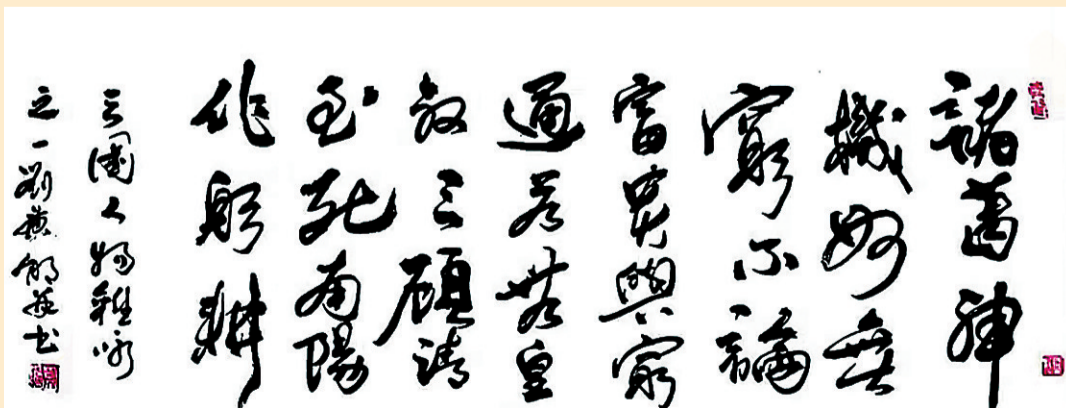 諸葛神
機妙無
窮不論
富貴與窮
通若無皇
叔三顧請
至死南陽
作躬耕
三國人物雜咏
之一劉书